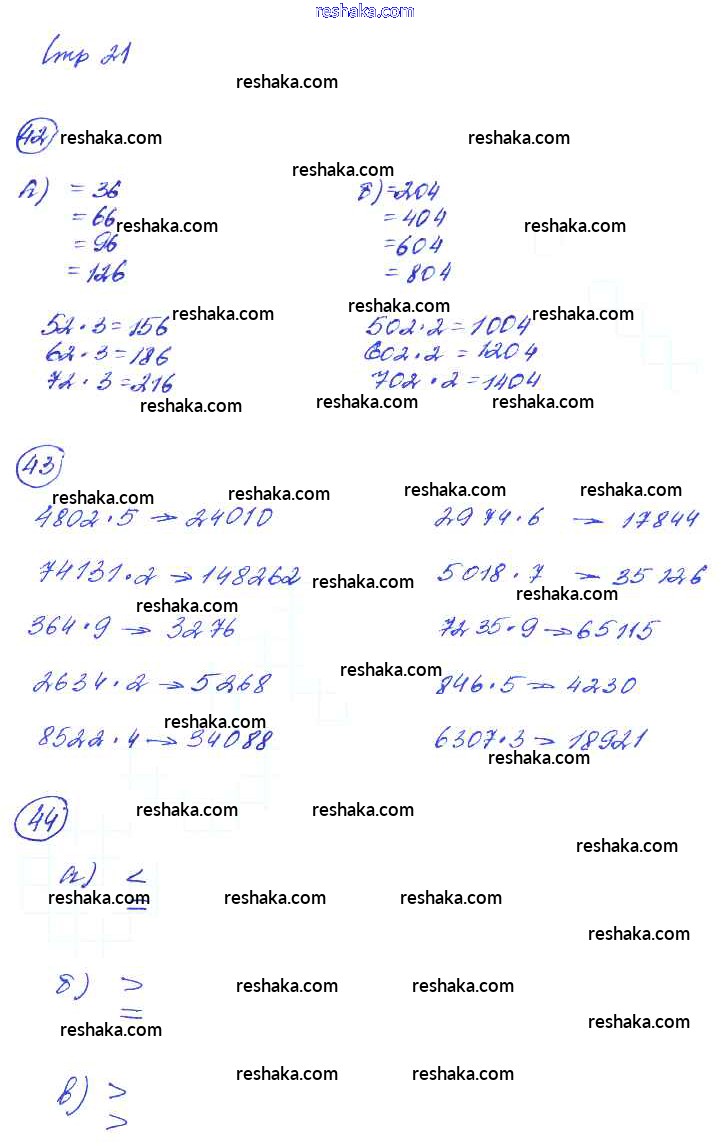 reshaka.com
Стр 21
reshaka.com
42 reshaka.com reshaka.com
reshaka.com
а) = 36 б) = 204
= 66 = 404
reshaka.com reshaka.com
= 96 = 604
= 126 = 804
reshaka.com reshaka.com reshaka.com
52 · 3 = 156 502 · 2 = 1004
62 · 3 = 186 602 · 2 = 1204
72 · 3 = 216 702 · 2 = 1404
reshaka.com reshaka.com reshaka.com
43
reshaka.com reshaka.com reshaka.com reshaka.com
4802 · 5 → 24010 2974 · 6 → 17844
74131 · 2 → 148262 reshaka.com 5018 · 7 → 35126
reshaka.com reshaka.com
364 · 9 → 3276 7235 · 9 → 65115
reshaka.com
2634 · 2 → 5268 846 · 5 → 4230
reshaka.com
8522 · 4 → 34088 6307 · 3 → 18921
reshaka.com
44 reshaka.com reshaka.com
reshaka.com
а) <
reshaka.com = reshaka.com reshaka.com
reshaka.com
б) > reshaka.com reshaka.com
=
reshaka.com reshaka.com
reshaka.com reshaka.com
в) >
>